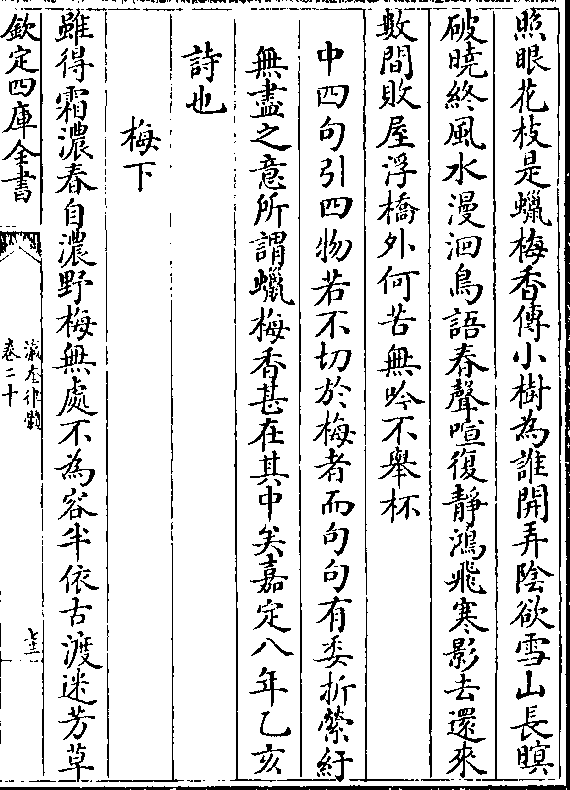 照眼花枝是蠟梅香傳小樹為誰開弄陰欲雪山長暝
破曉終風水漫洄鳥語春聲喧復靜鴻飛寒影去還來
數間敗屋浮橋外何苦無吟不舉杯
中四句引四物若不切於梅者而句句有委折縈紆
無盡之意所謂蠟梅香甚在其中矣嘉定八年乙亥
詩也
梅下
雖得霜濃春自濃野梅無處不為容半依古渡迷芳草
欽定四庫全書
瀛奎律髓
卷二十